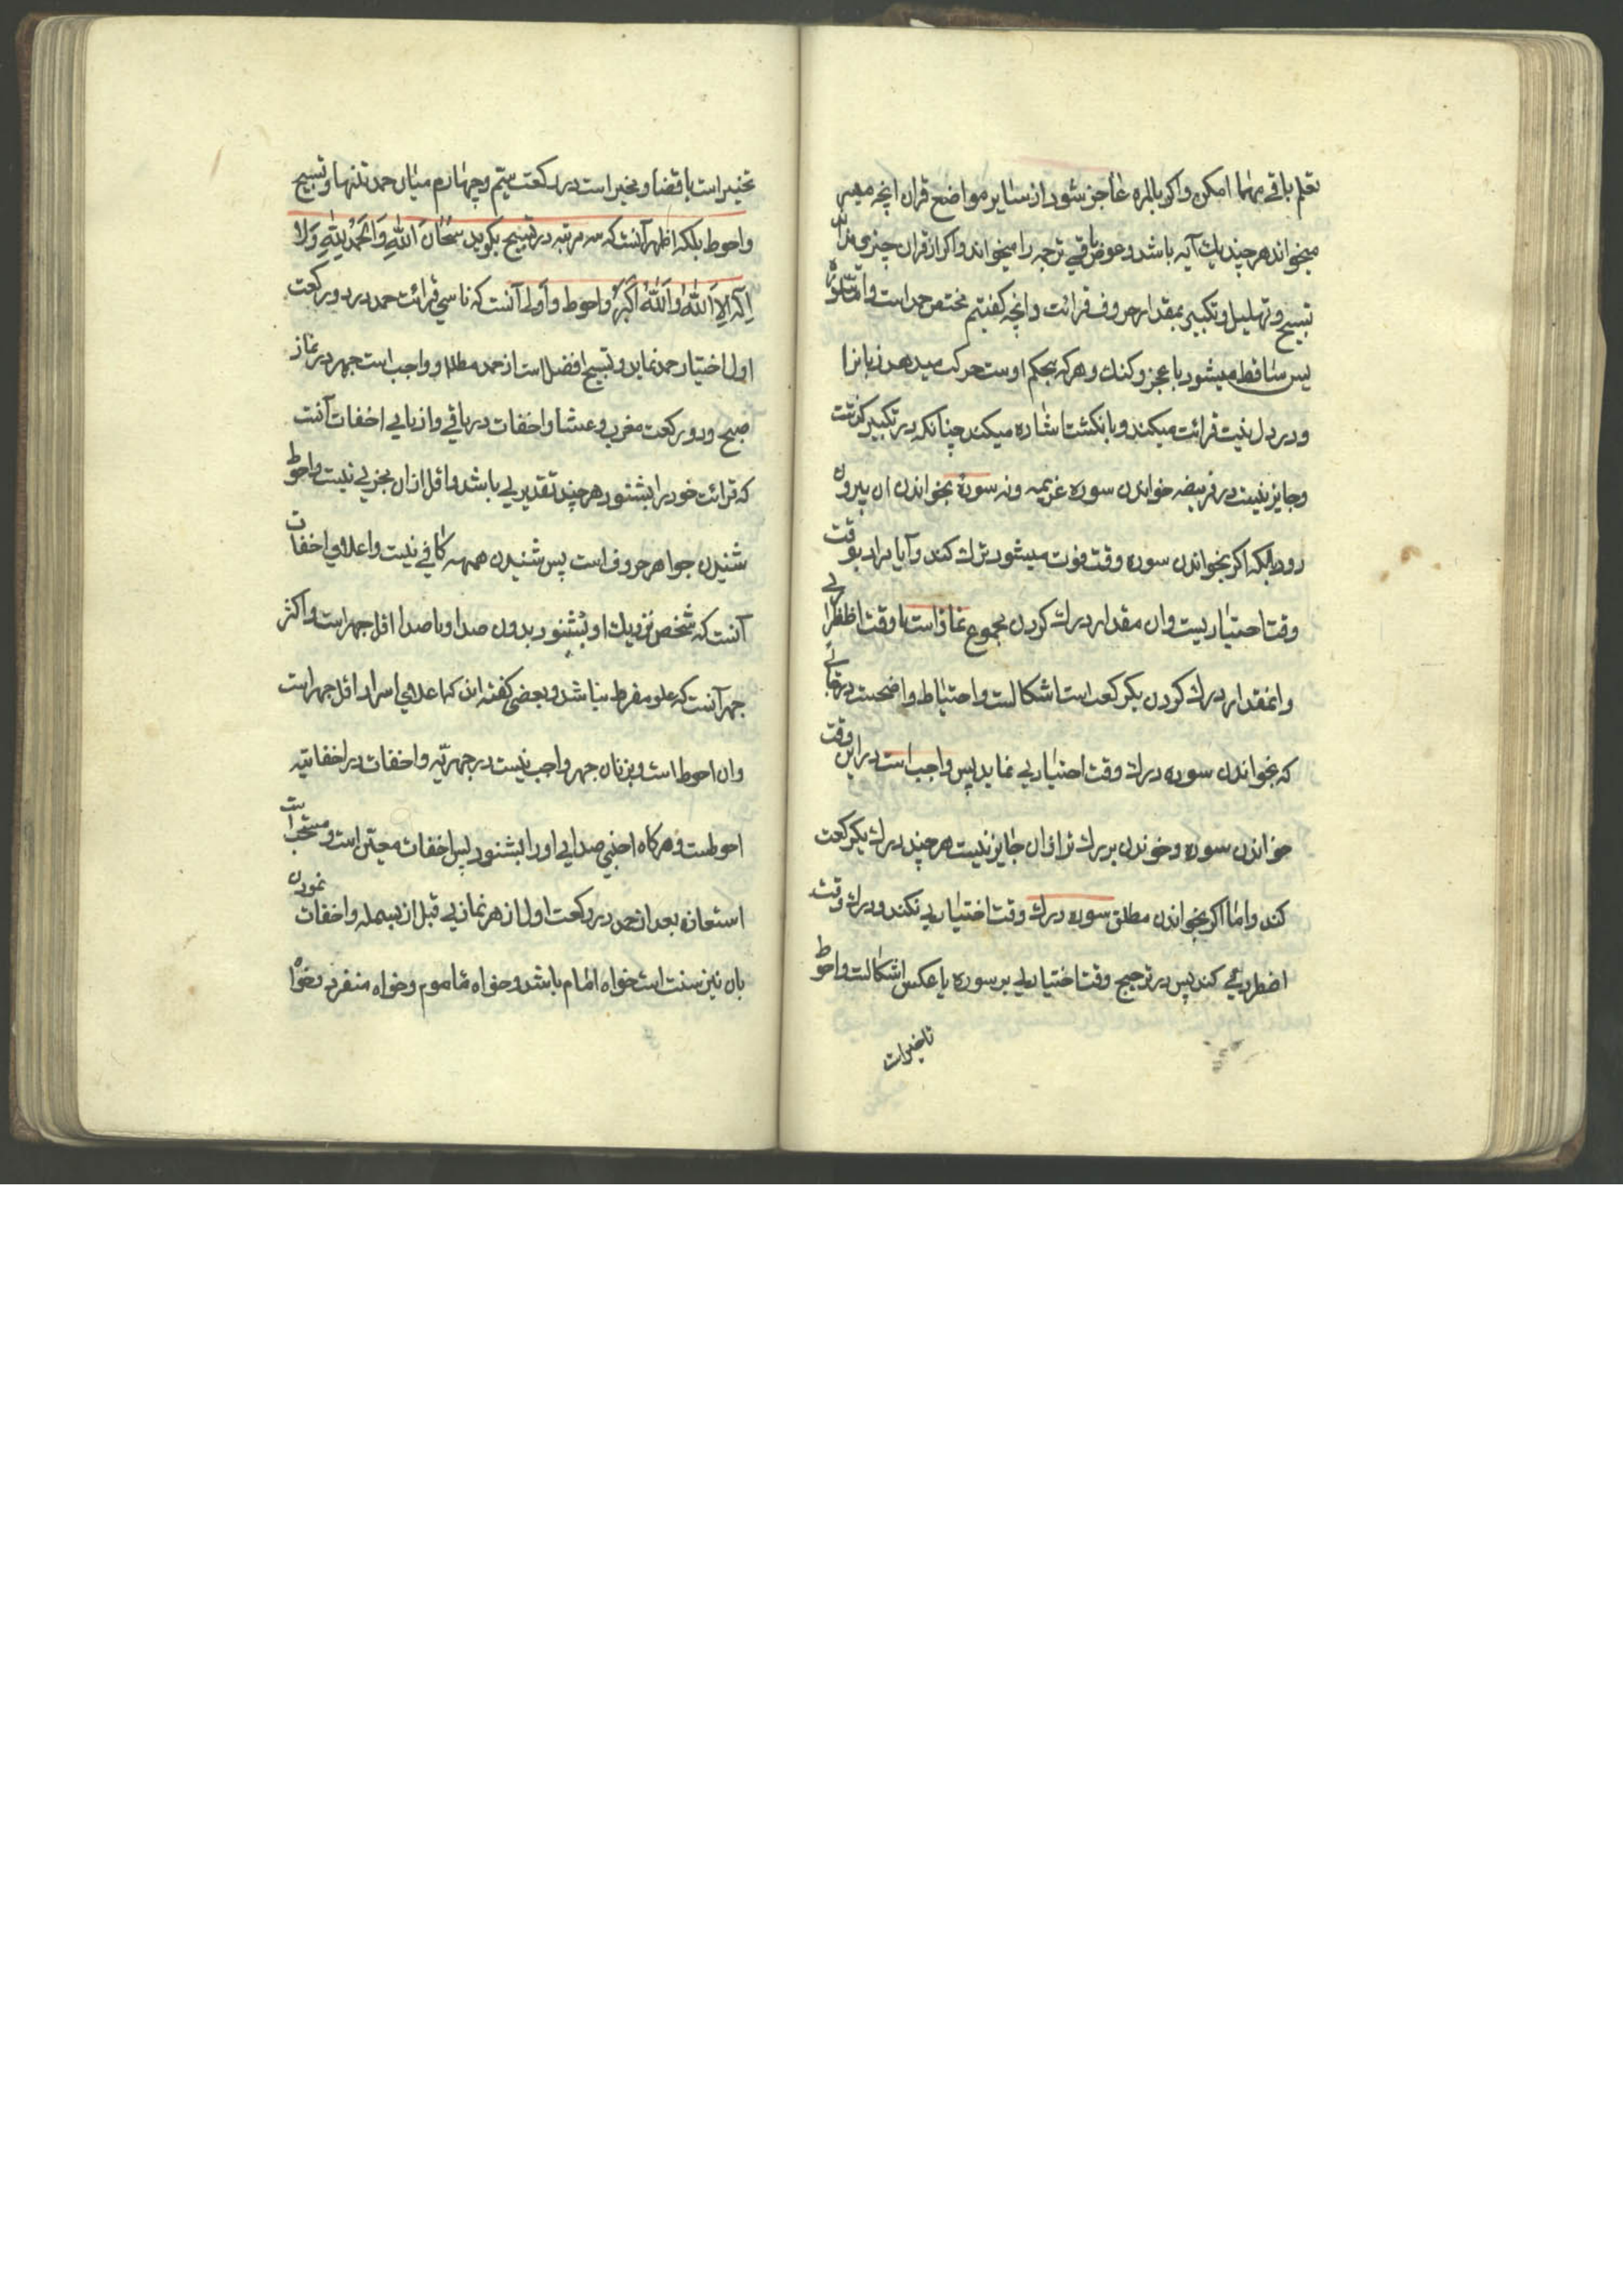 تعلم باقی مهما امکن و اکر بالمره عاجز شود از سایر مواضع قران انچه میسر
میخواند هر چند یك آیه باشد و عوض باقی ترجمه را میخواند و اکر از قران چیزی نداند
تسبیح و تهلیل و تکبیر بمقدار حروف قرائت و انچه کفتیم مختص حمد است و اما سوره
پس ساقط میشود با عجز و کنك و هر که بحکم اوست حرکت میدهد زبانرا
و در دل نیت قرائت میکند و بانکشت اشاره میکند چنانکه در تکبیر کذشت
و جایز نیست در فریضه خواندن سوره عزیمه و نه سورهٔ بخواندن ان بیرون
رود بلکه اکر بخواندن سوره وقت فوت میشود ترك کند و آیا مراد بوقت
وقت اختیاریست و ان مقدار درك کردن مجموع نماز است یا وقت اضطراری
و انمقدار درك کردن یکرکعت است اشکالست و احتیاط واضحست در جائی
که بخواندن سوره درك وقت اختیاری نماید پس واجب است در این وقت
خواندن سوره و خوندن بر درك ازان جایز نیست هر چند درك یکرکعت
کند و اما اکر بخواندن مطلق سوره درك وقت اختیاری نکند و درك وقت
اضطرری کند پس در ترجیح وقت اختیاری بر سوره یا عکس اشکالست و احوط
تاخیرات
تخییر است با قضا و مخیر است در رکعت سیّم و چهارم میان حمد تنها و تسبیح
و احوط بلکه اظهر آنست که سه مرتبه در تسبیح بکوید سُبْحَانَ اَللّٰهِ وَاَلْحَمْدُ لِلّٰهِ وَلَا
اِلٰهَ اِلَّا اَللّٰهُ وَ اَللّٰهُ اَکْبَرُ و احوط و اولی آنست که ناسی قرائت حمد در دو رکعت
اول اختیار حمد نماید و تسبیح افضل است از حمد مطلقا و واجب است جهر در نماز
صبح و دو رکعت مغرب و عشا و اخفات در باقی و ازیابی اخفات آنست
که قرائت خود را بشنود هر چند تقدیری باشد و اقل ازان مجزی نیست و احوط
شنیدن جواهر حروف است پس شنیدن همهمه کافی نیست و اعلای اخفات
آنست که شخص نزدیك او بشنود بدون صدا و با صدا اقل جهر است و اکثر
جهر آنست که علو مفرط نباشد و بعضی کفته اند که اعلای اسرار اقل جهر است
و ان احوط است و بر زنان جهر واجب نیست در جهریّه و اخفات در اخفاتیه
احوطست و هرکاه اجنبی صدای او را بشنود پس اخفات معیّن است و مستحب است
استعاذه بعد از حمد در رکعت اول از هر نمازی قبل از بسمله و اخفات نمودن
بان نیز سنت است خواه امام باشد و خواه ماموم و خواه منفرد و خواه